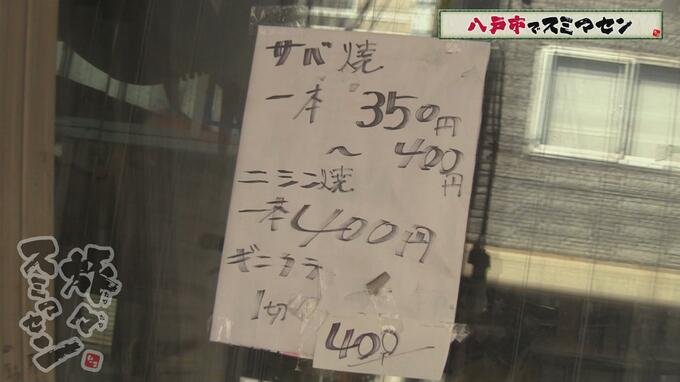 八戸市でスミマセン
サバ焼
一本 350円
〜 400円
ニシン焼
一本 400円
ギンカラ
1切
400
旅々
スミマセン